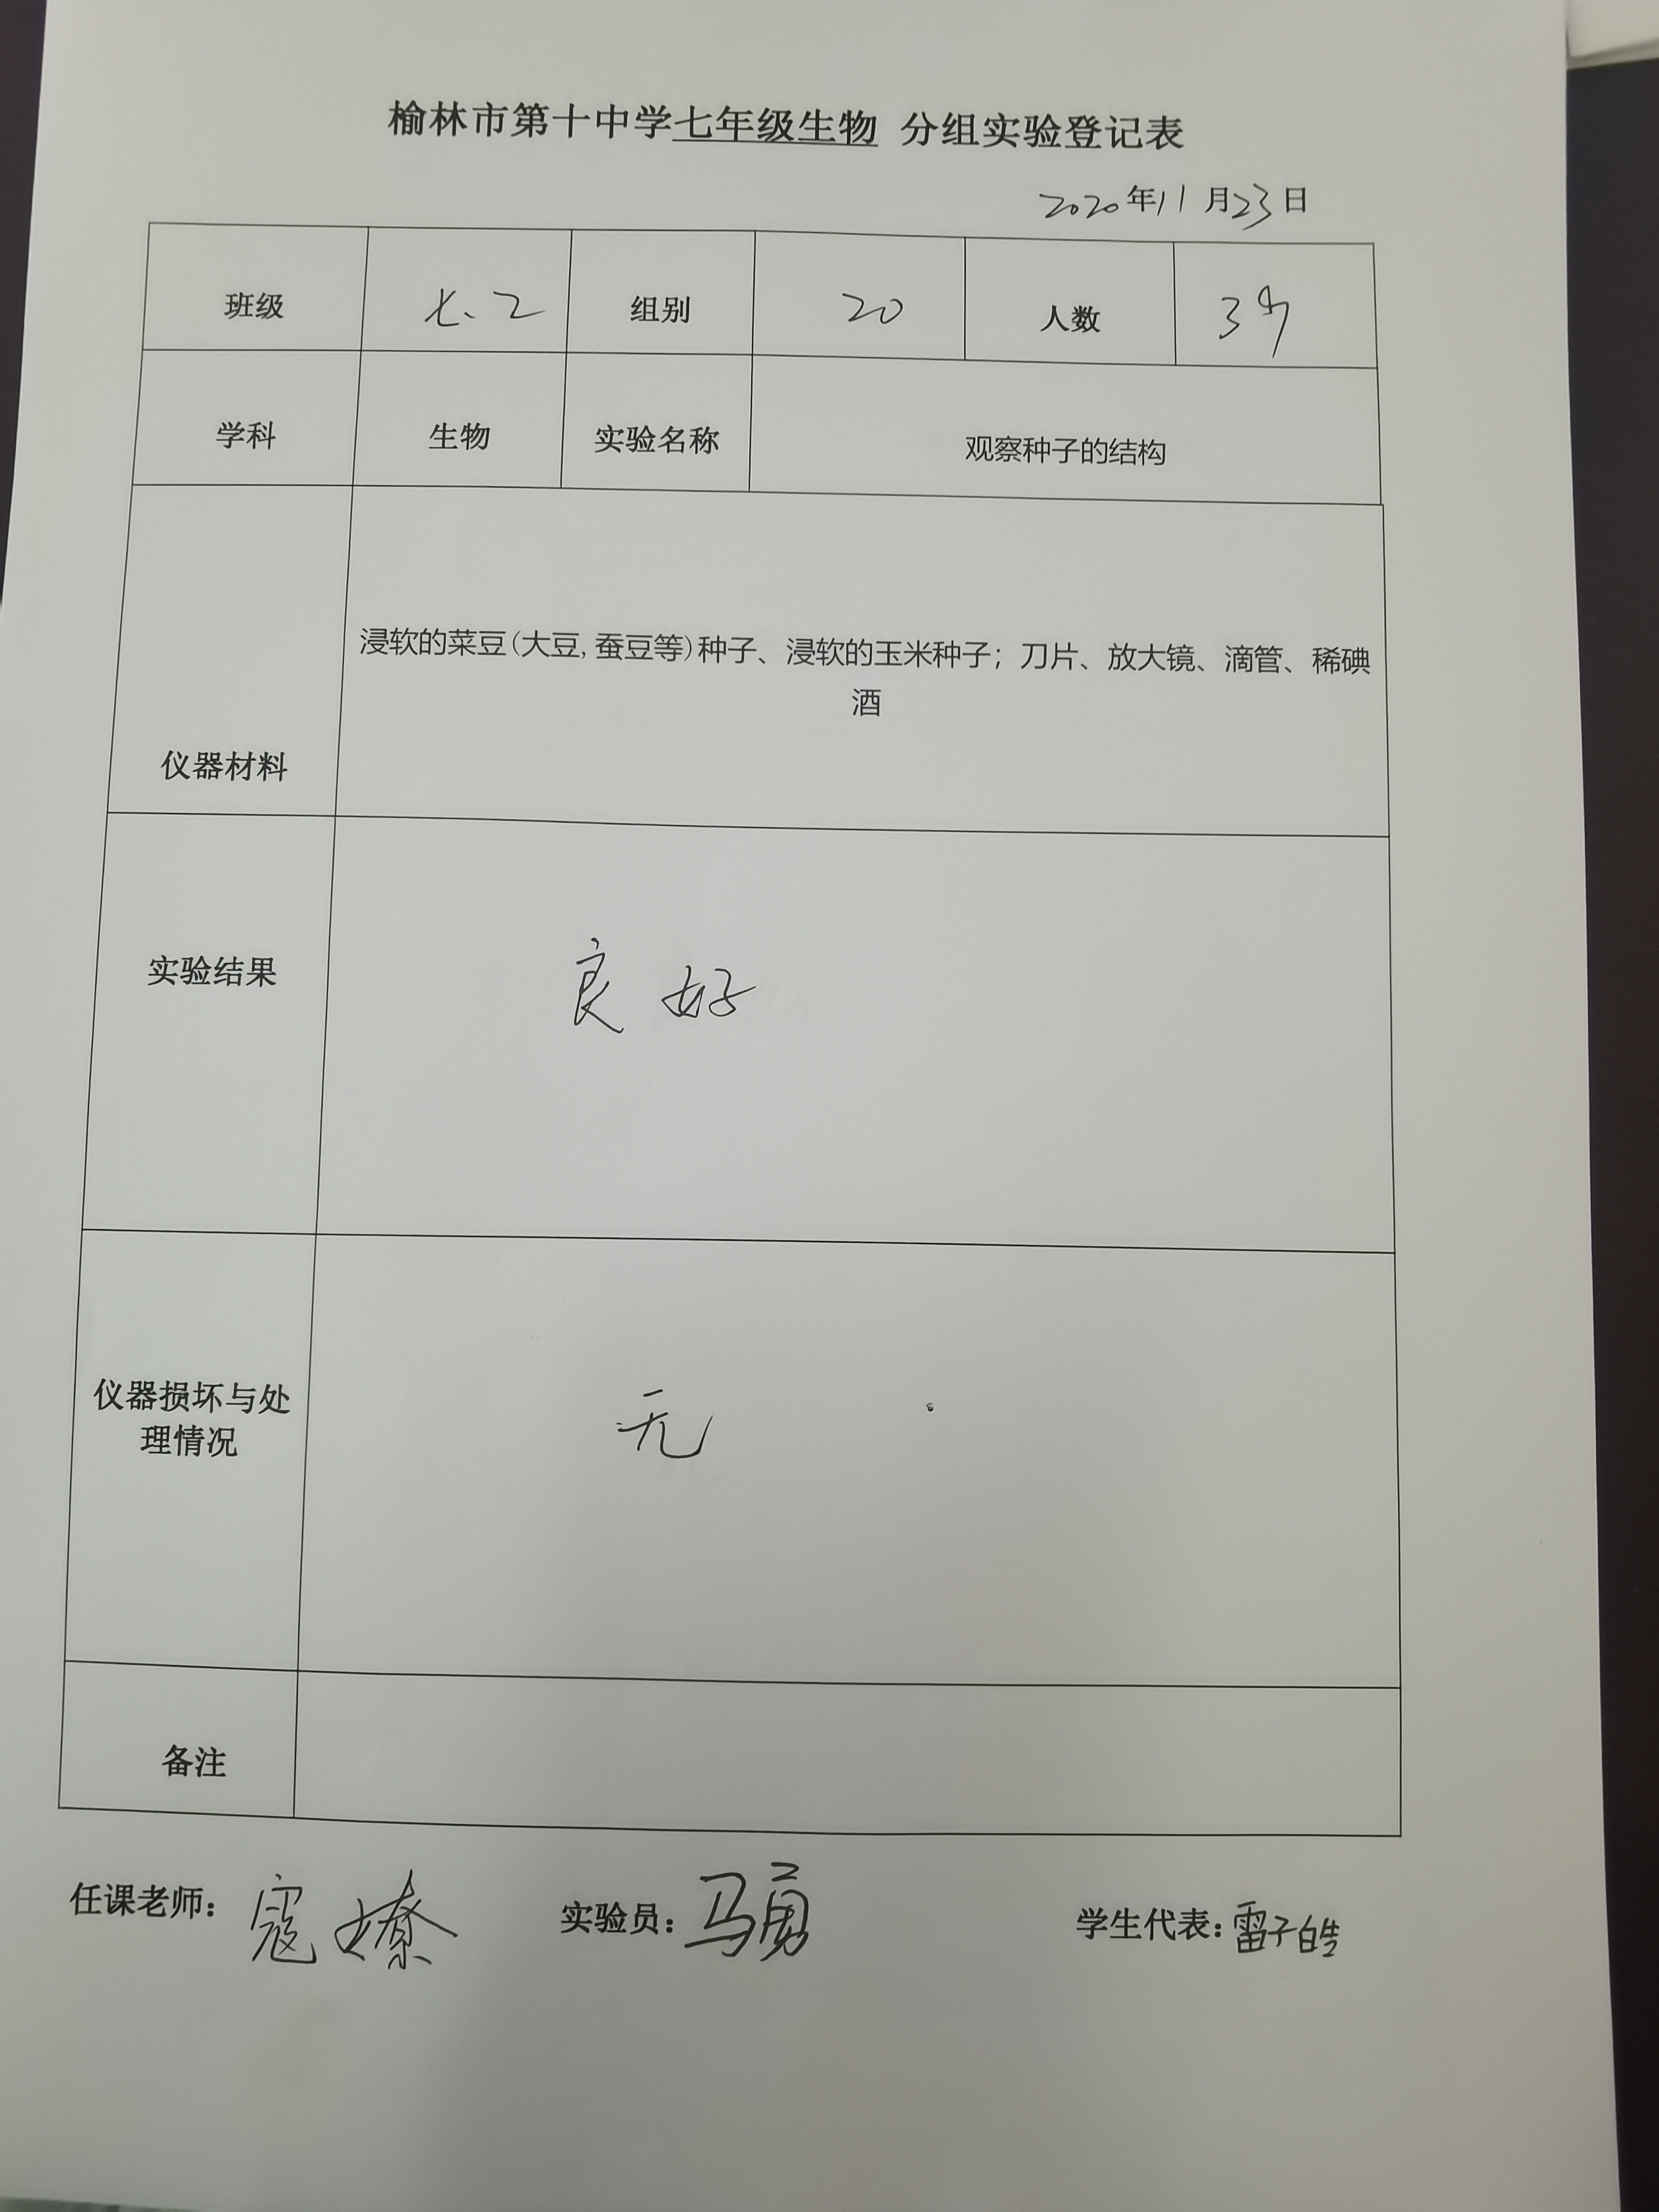 榆林市第十中学七年级生物 分组实验登记表
2020年11月23日
班级 七、2 组别 20 人数 39
学科 生物 实验名称 观察种子的结构
浸软的菜豆(大豆,蚕豆等)种子、浸软的玉米种子；刀片、放大镜、滴管、稀碘
酒
仪器材料
实验结果 良好
仪器损坏与处
理情况
无
备注
任课老师：寇嫽 实验员：马勇 学生代表：雷子皓